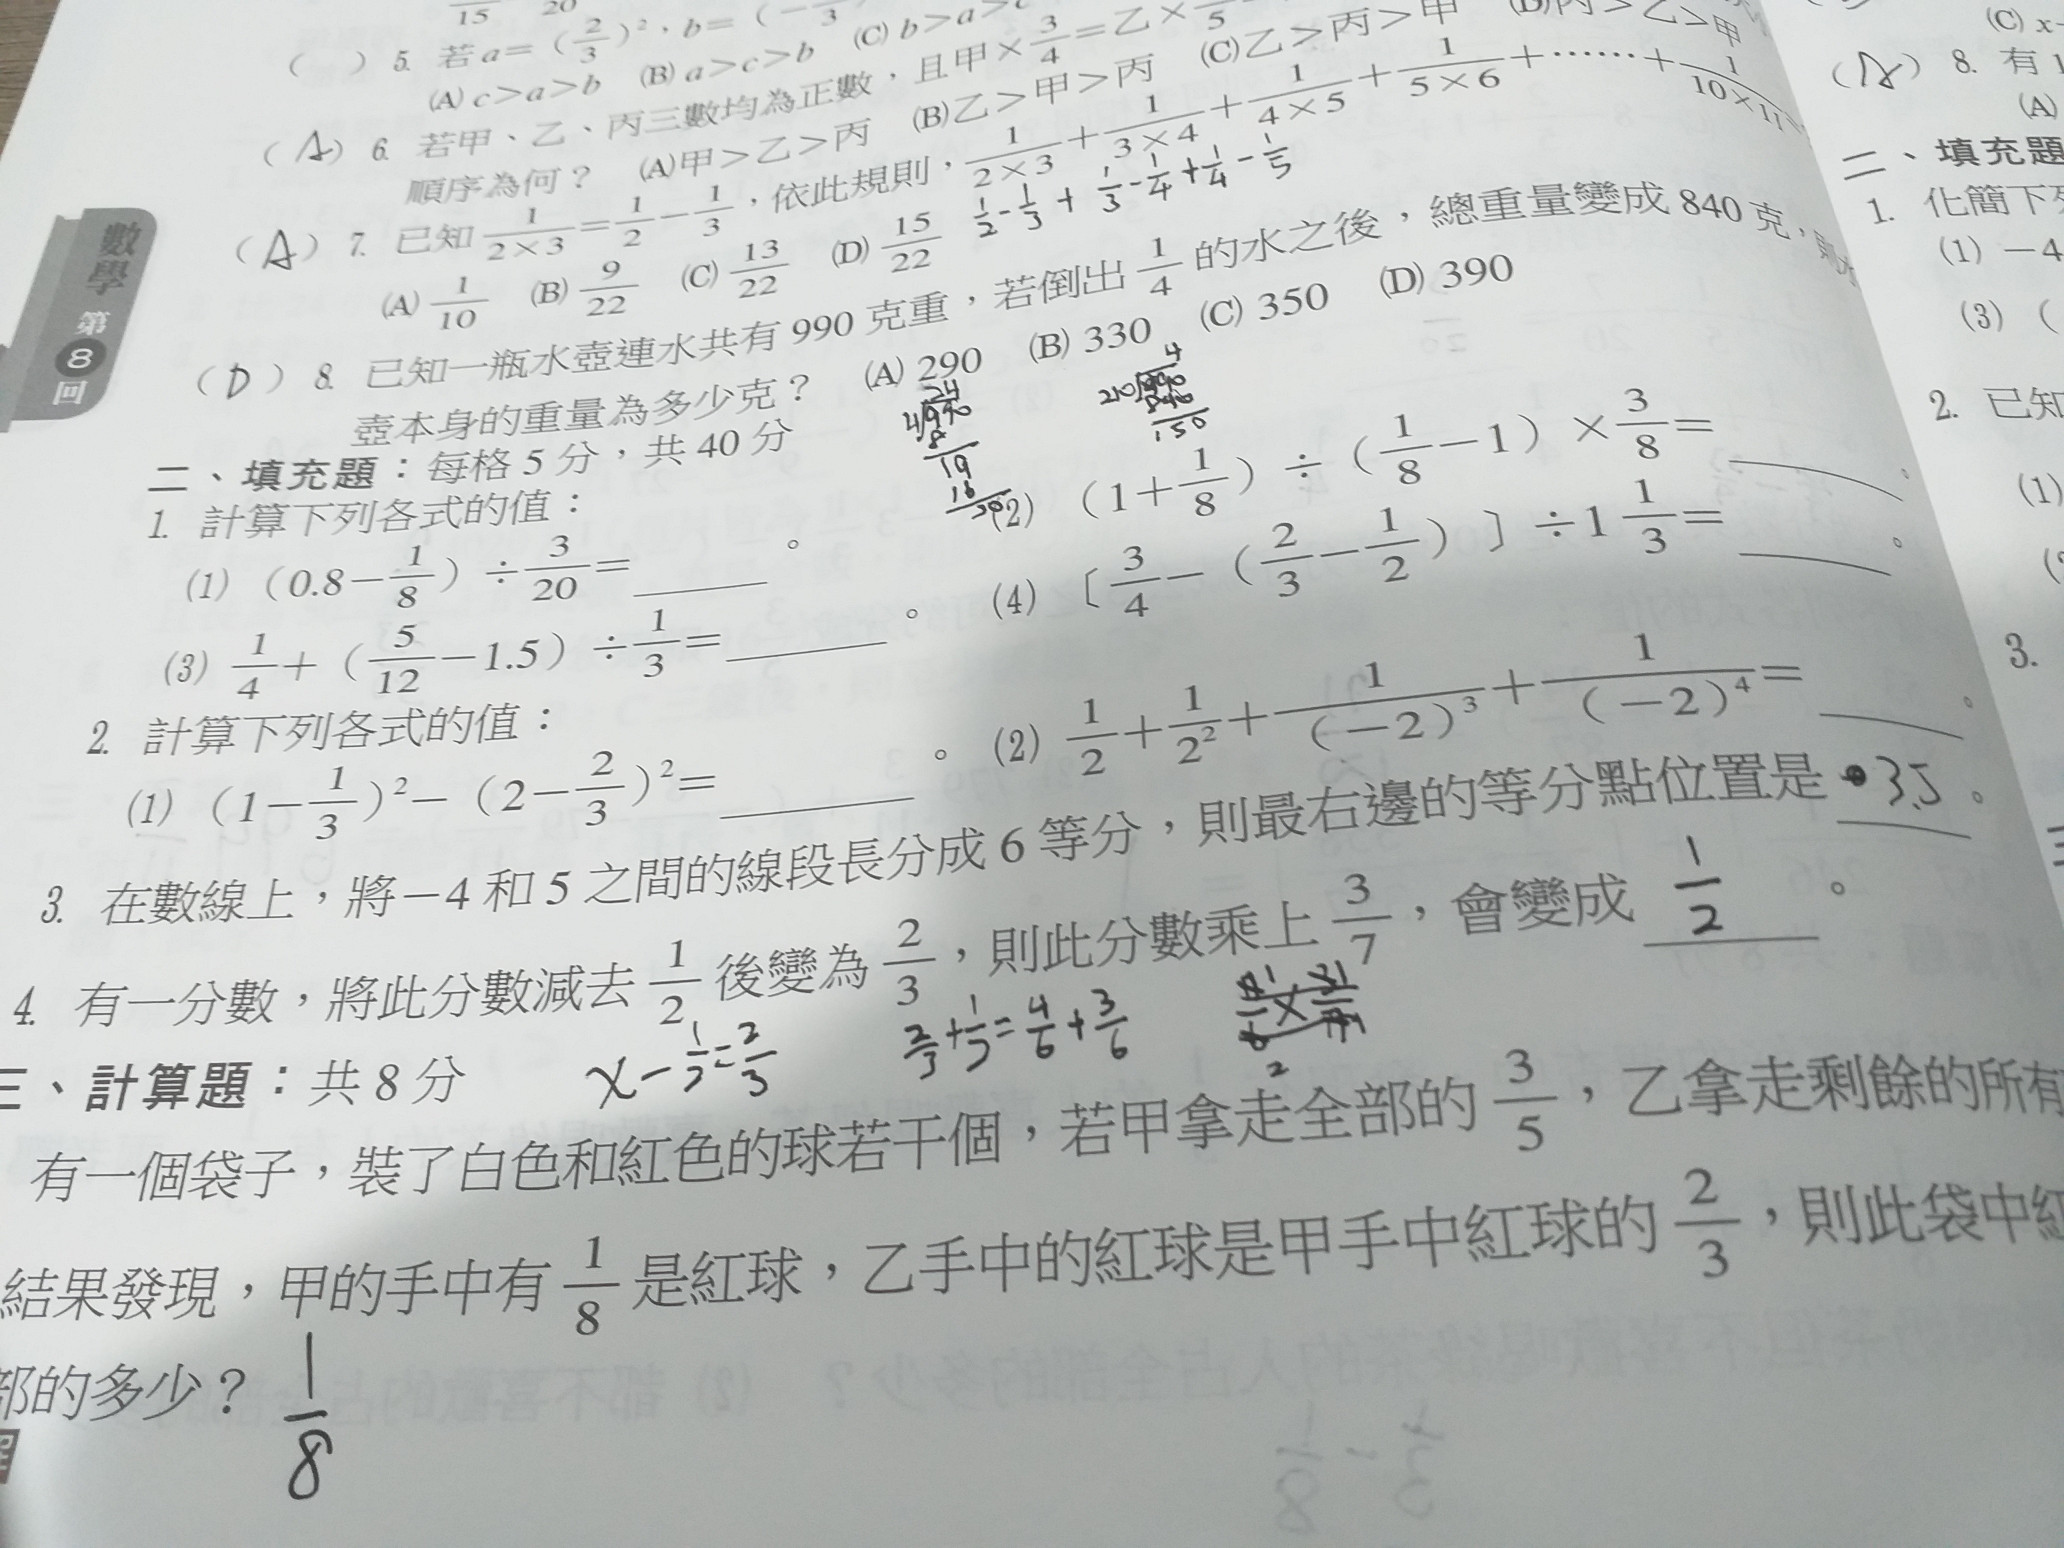 15 20
( ) 5. 若a=(2/3)²,b=(-
(A) c>a>b (B) a>c>b (C) b>a>c
(A) 6. 若甲、乙、丙三數均為正數,且甲×3/4=乙×
順序為何? (A)甲>乙>丙 (B)乙>甲>丙 (C)乙>丙>甲 (D)丙>乙>甲
(A) 7. 已知1/(2×3)=1/2-1/3,依此規則,1/(2×3)+1/(3×4)+1/(4×5)+1/(5×6)+……+1/(10×11)
1/2-1/3+1/3-1/4+1/4-1/5
(A) 1/10 (B) 9/22 (C) 13/22 (D) 15/22
(D) 8. 已知一瓶水壺連水共有990克重,若倒出1/4的水之後,總重量變成840克,則
壺本身的重量為多少克? (A) 290 (B) 330 (C) 350 (D) 390
二、填充題:每格5分,共40分
1. 計算下列各式的值:
(1) (0.8-1/8)÷3/20=______。 (2) (1+1/8)÷(1/8-1)×3/8=______。
(3) 1/4+(5/12-1.5)÷1/3=______。 (4) 〔3/4-(2/3-1/2)〕÷1 1/3=______。
2. 計算下列各式的值:
(1) (1-1/3)²-(2-2/3)²=______。 (2) 1/2+1/2²+1/(-2)³+1/(-2)⁴=______。
3. 在數線上,將-4和5之間的線段長分成6等分,則最右邊的等分點位置是 3.5 。
4. 有一分數,將此分數減去1/2後變為2/3,則此分數乘上3/7,會變成 1/2 。
x-1/2=2/3 2/3+1/2=4/6+3/6
三、計算題:共8分
有一個袋子,裝了白色和紅色的球若干個,若甲拿走全部的3/5,乙拿走剩餘的所有
結果發現,甲的手中有1/8是紅球,乙手中的紅球是甲手中紅球的2/3,則此袋中紅
部的多少? 1/8
數學 第8回
(C) x
(A) 8. 有
(A)
二、填充題
1. 化簡下
(1) -4
(3) (
2. 已知
(1)
3.